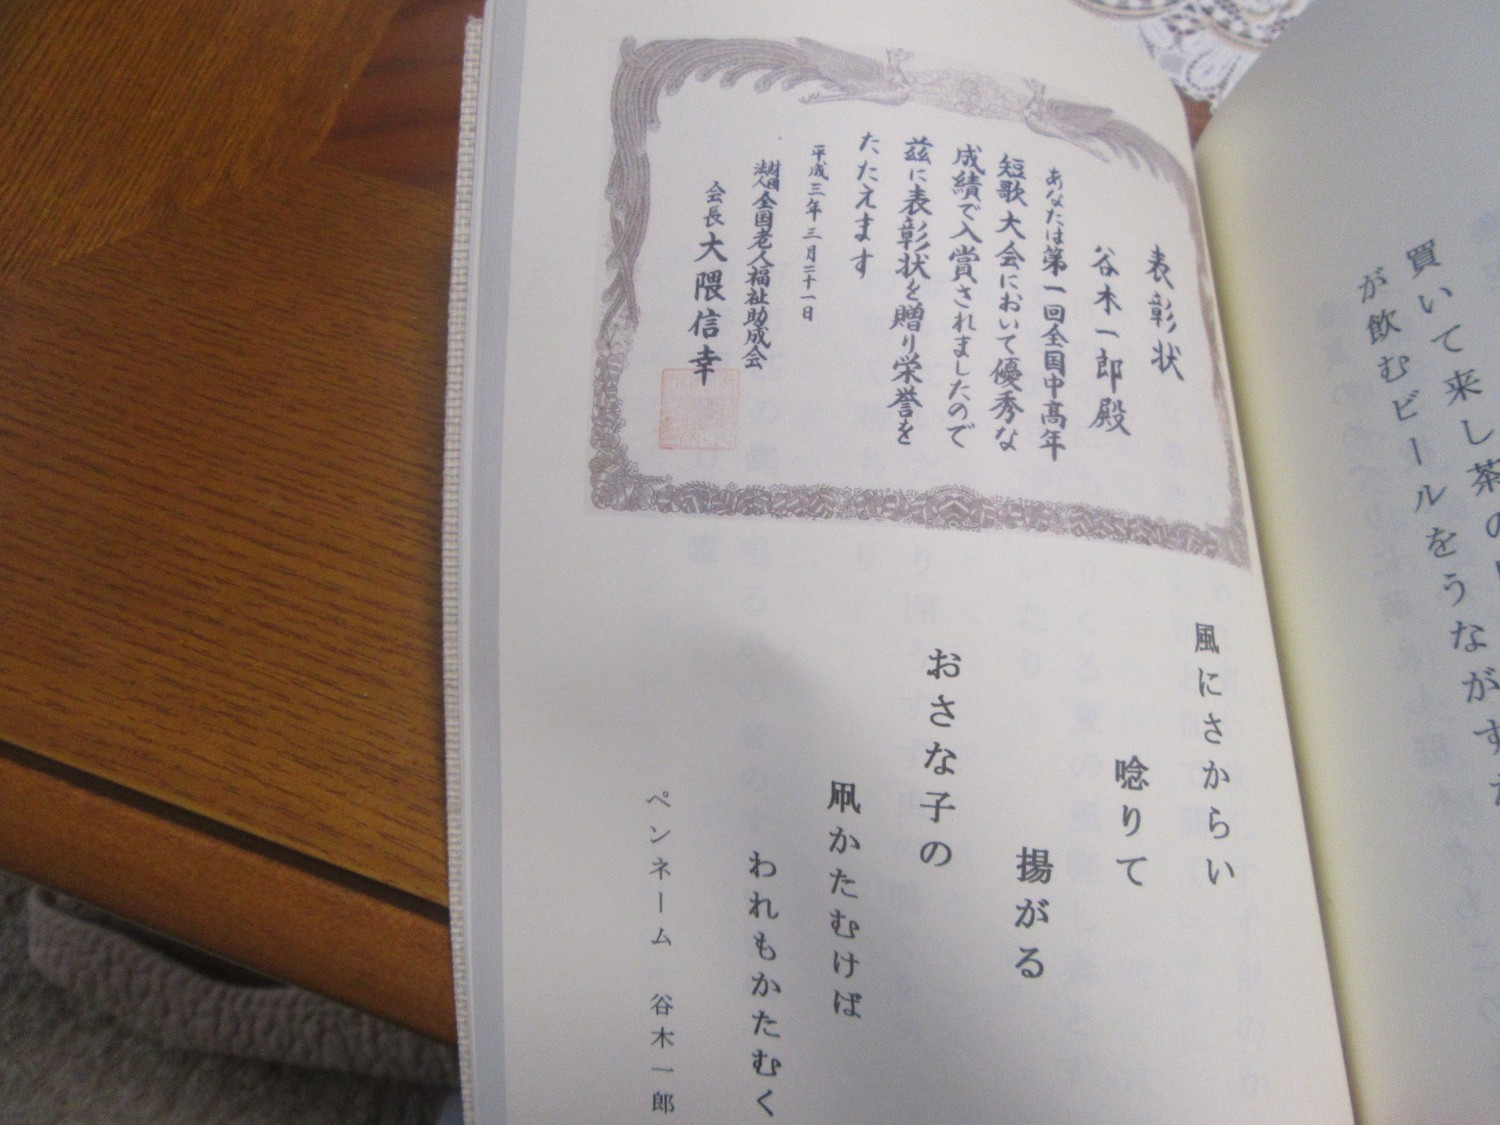 買いて来し茶の
が飲むビールをうながす
表彰状
谷木一郎殿
あなたは第一回全国中高年
短歌大会において優秀な
成績で入賞されましたので
茲に表彰状を贈り栄誉を
たたえます
平成三年三月二十一日
財団法人全国老人福祉助成会
会長大隈信幸
風にさからい
唸りて
揚がる
おさな子の
凧かたむけば
われもかたむく
ペンネーム 谷木一郎